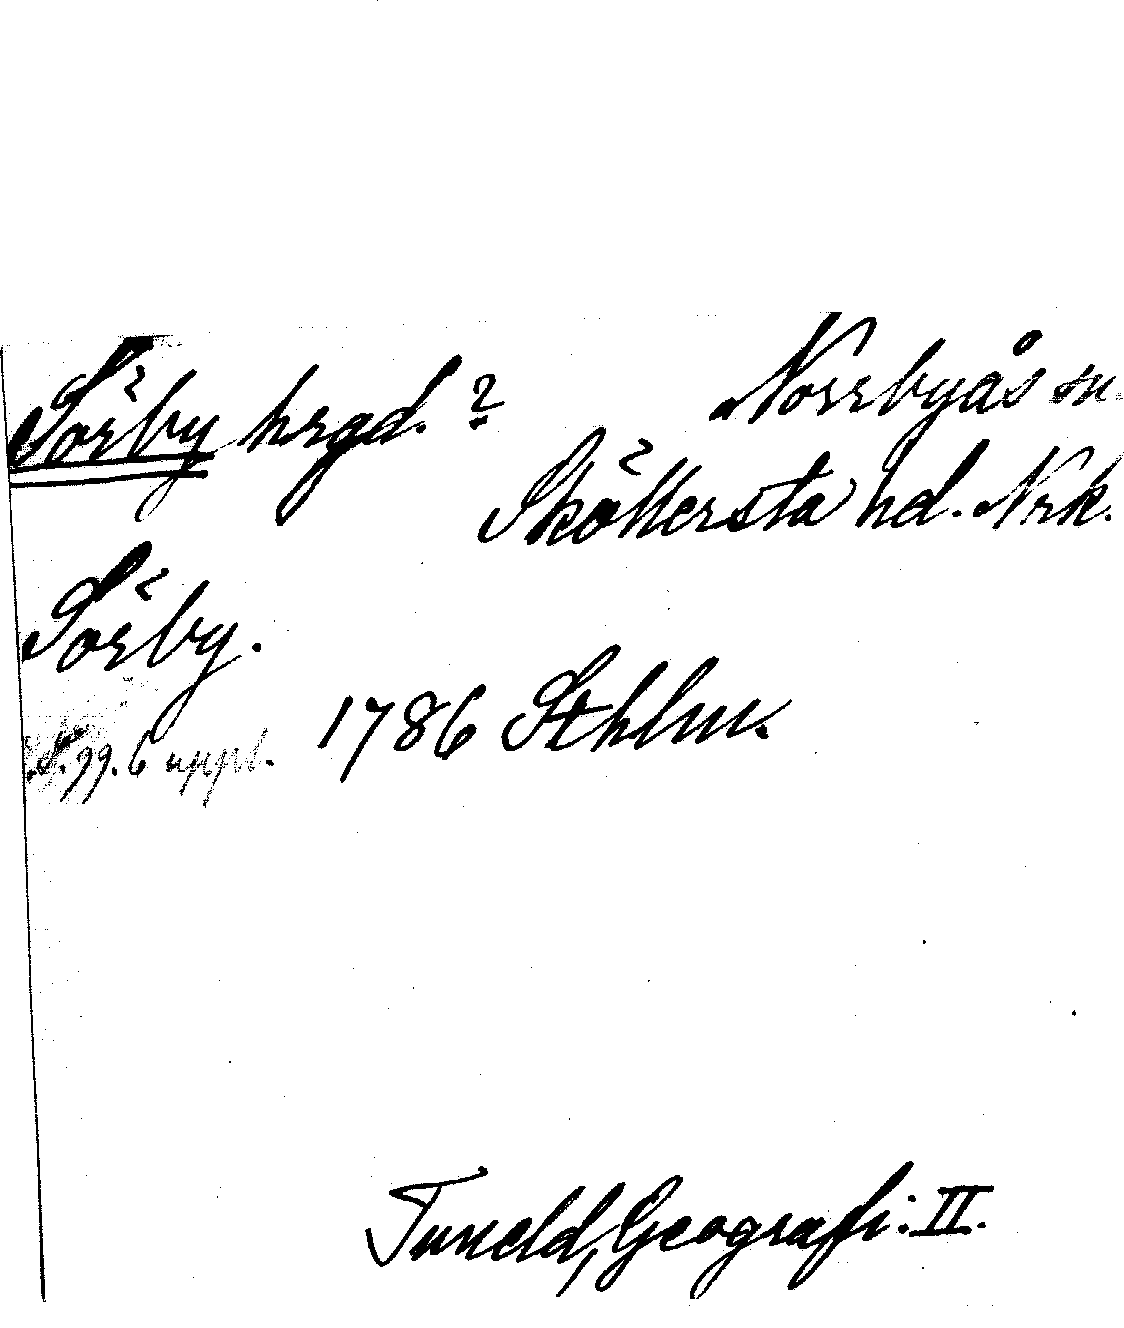 Sörby hrgd.?
Norrbyås sn.
Sköllersta hd. Nrk.
Sörby.
S. 99. 6 uppl.
1786 Sthlm.
Tuneld, Geografi: II.